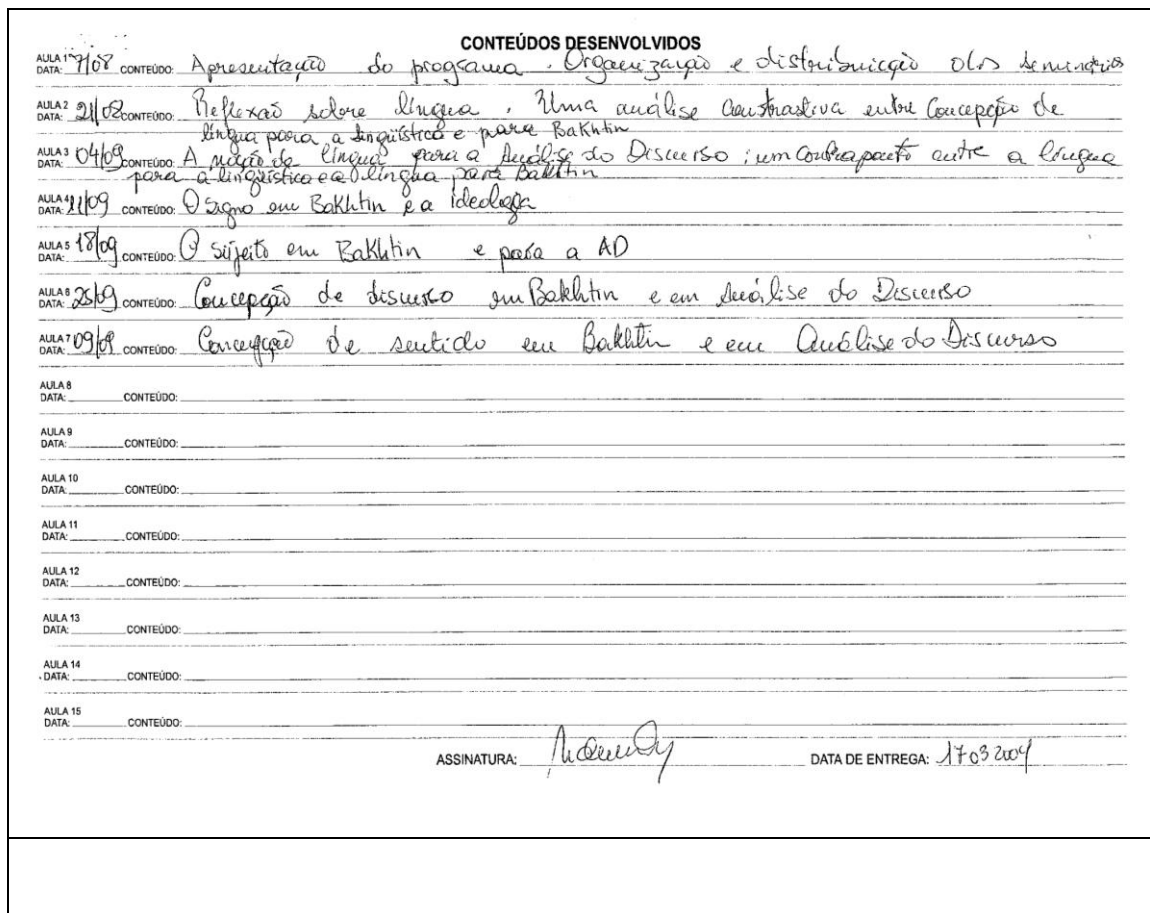 CONTEÚDOS DESENVOLVIDOS
AULA 1
DATA: 7/08 CONTEÚDO: Apresentação do programa. Organização e distribuição dos seminários
AULA 2
DATA: 21/08 CONTEÚDO: Reflexão sobre língua. Uma análise constrastiva entre Concepção de
língua para a lingüística e para Bakhtin
AULA 3
DATA: 04/09 CONTEÚDO: A noção de língua para a Análise do Discurso; um contraponto entre a língua
para a lingüística e a língua para Bakhtin
AULA 4
DATA: 11/09 CONTEÚDO: O signo em Bakhtin e a ideologia
AULA 5
DATA: 18/09 CONTEÚDO: O sujeito em Bakhtin e para a AD
AULA 6
DATA: 25/09 CONTEÚDO: Concepção de discurso em Bakhtin e em Análise do Discurso
AULA 7
DATA: 09/09 CONTEÚDO: Concepção de sentido em Bakhtin e em Análise do Discurso
AULA 8
DATA: CONTEÚDO:
AULA 9
DATA: CONTEÚDO:
AULA 10
DATA: CONTEÚDO:
AULA 11
DATA: CONTEÚDO:
AULA 12
DATA: CONTEÚDO:
AULA 13
DATA: CONTEÚDO:
AULA 14
DATA: CONTEÚDO:
AULA 15
DATA: CONTEÚDO:
ASSINATURA: DATA DE ENTREGA: 17 03 2004